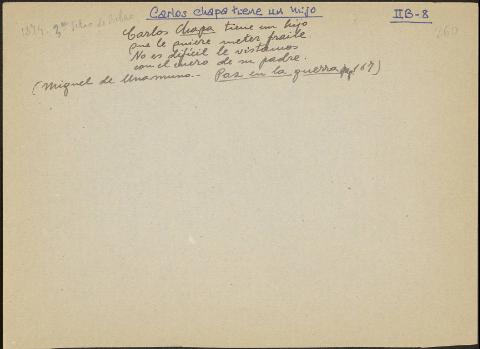 1874. 2º Sitio de Bilbao
Carlos Chapa tiene un hijo
IIB-8
260
Carlos Chapa tiene un hijo
que le quiere meter fraile.
No es dificil le vistamos
con el cuero de su padre.
(Miguel de Unamuno.- Paz en la guerra pg 167)